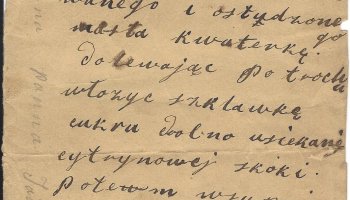 wanego i ostydzonego
masła kwaterkę.
dolewając potrochu
włozyć szklawkę
cukru dobno usiekanej
cytrynowej skóki.
Potewm wsypi
na panna Ja